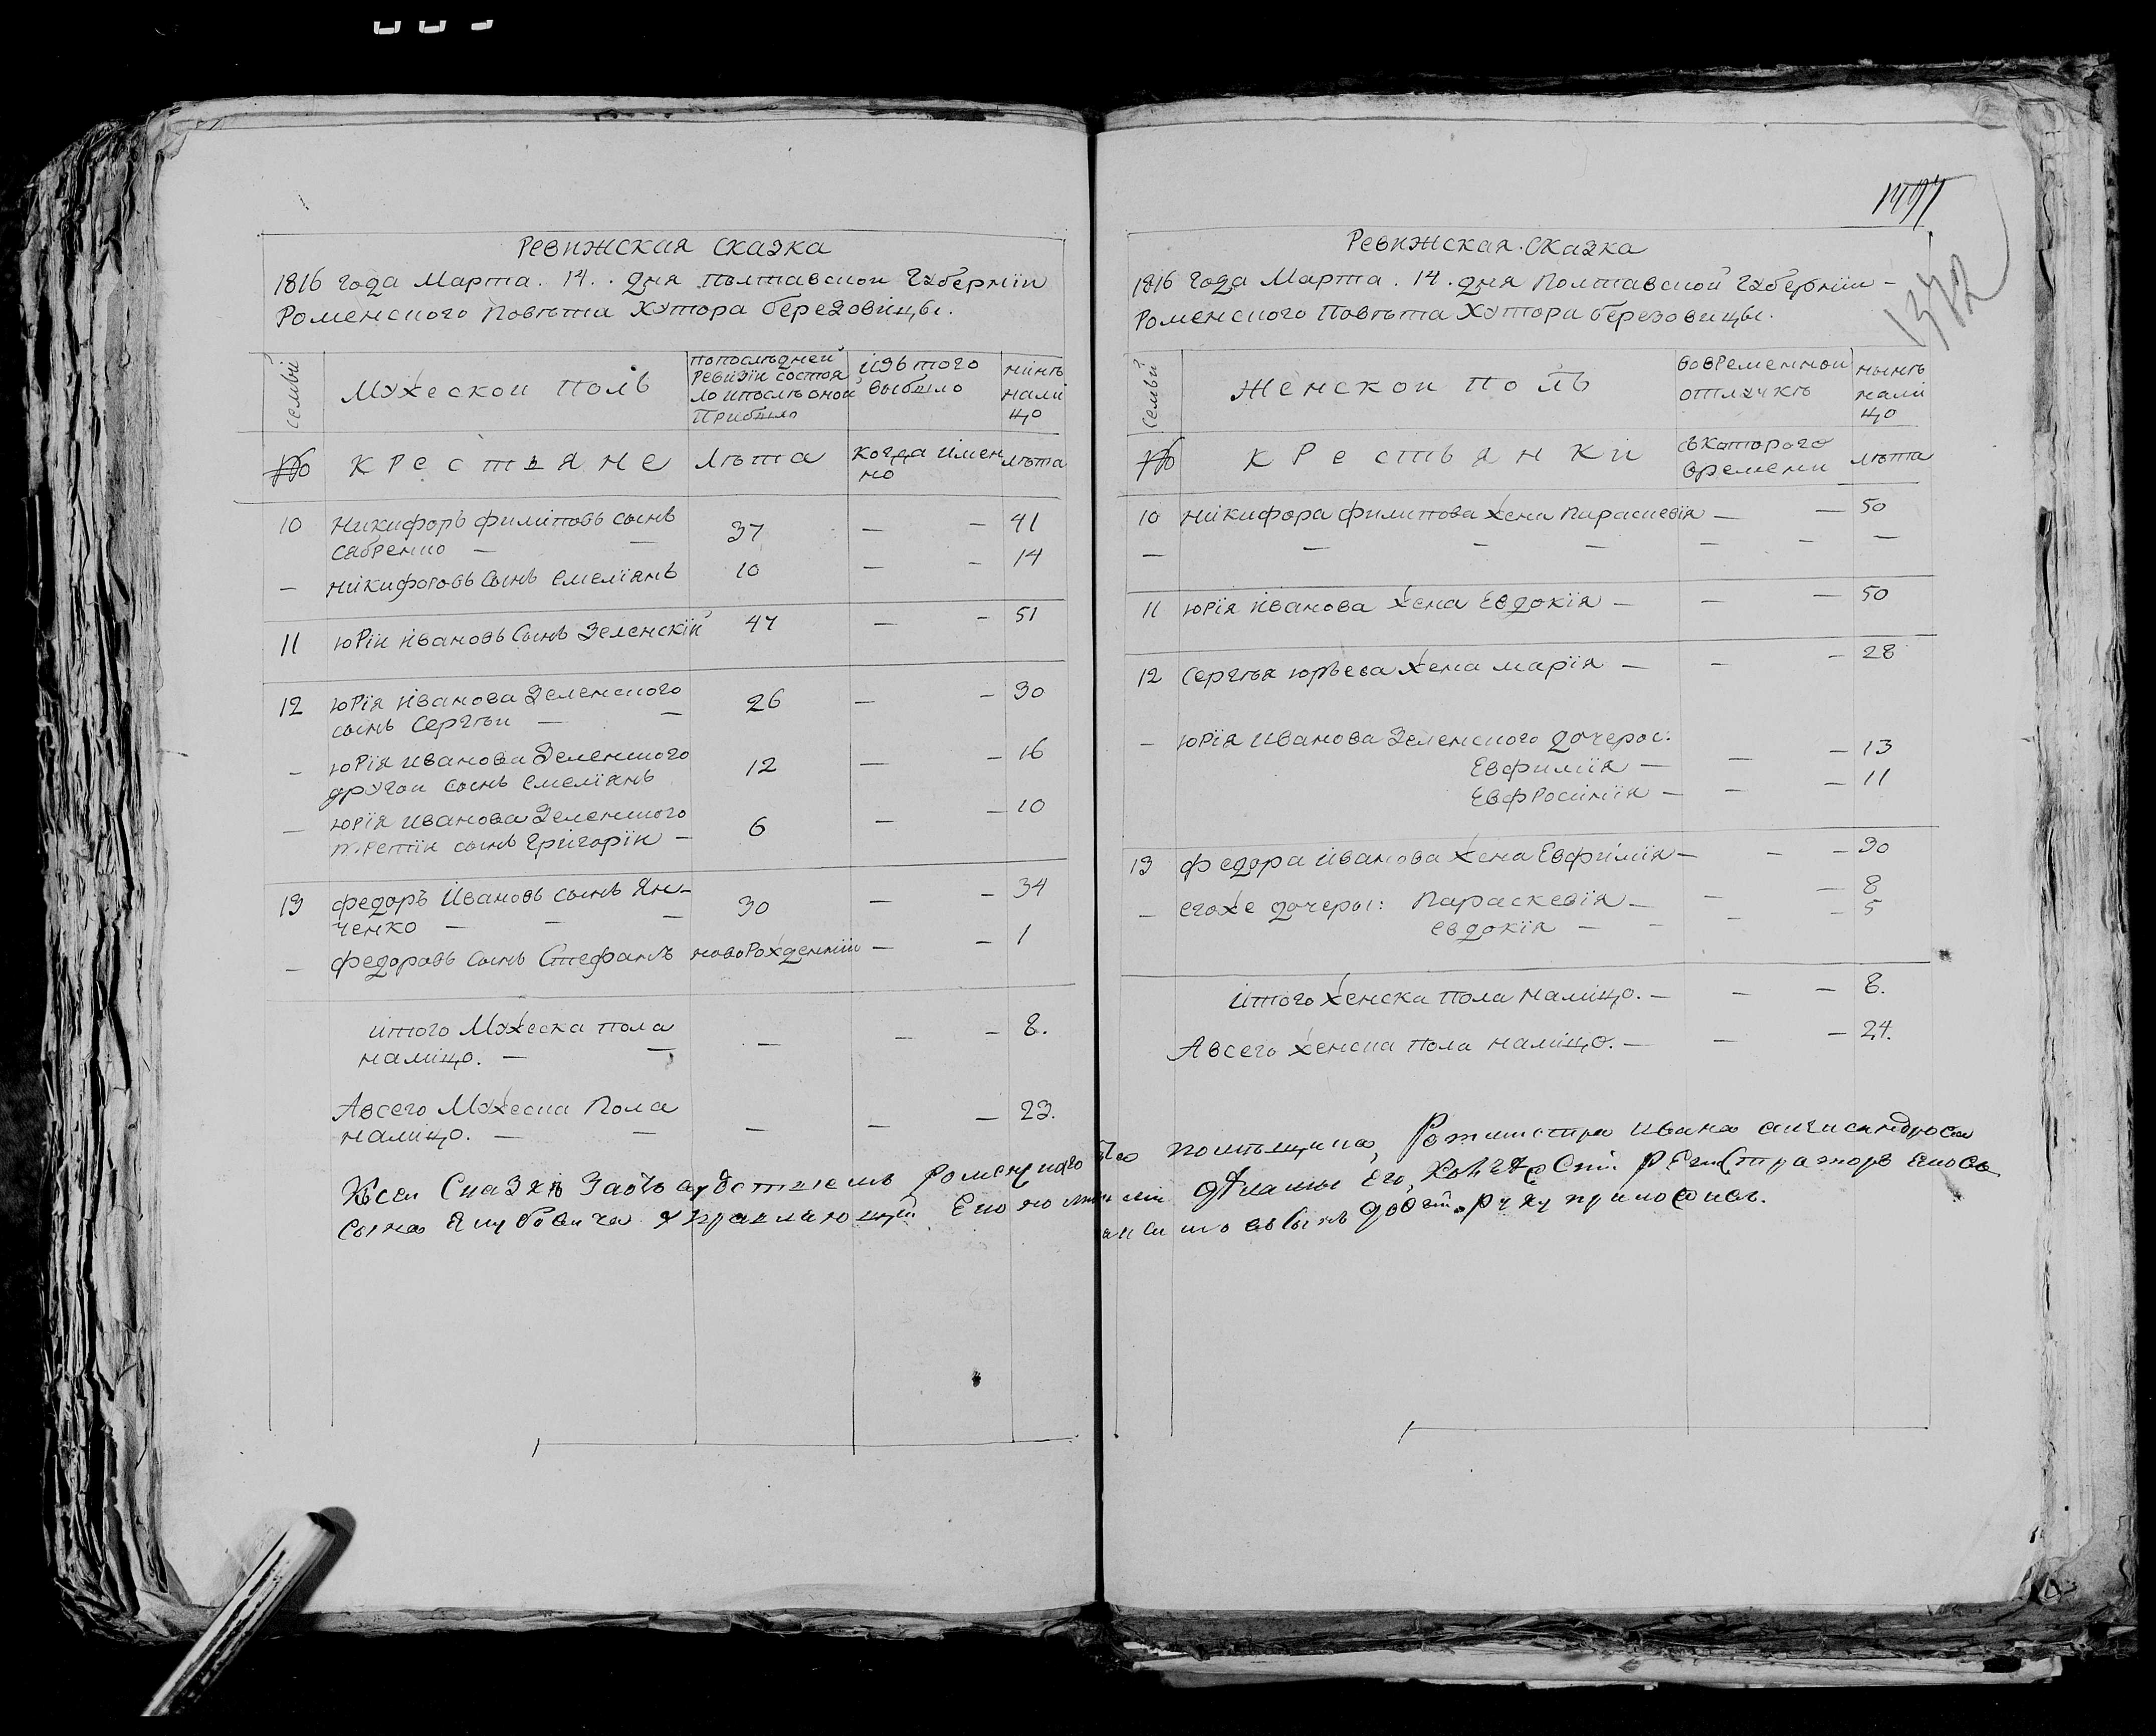 Ревижская сказка
1816 года Марта. 14. дня полтавскои Губернїи
Роменского Повѣта Хутора березовицы.
семьи
Мужескои полъ
попослѣдней
ревизїи состоя
ло ипослѣ оной
Прибыло
изъ того
выбыло
нинѣ
нали
цо
№
крестьяне
лѣта
когда имен
но
лѣта
10 никифоръ филиповъ сынъ 37 — — 41
сабренко — —
— никифоровъ сынъ емелїянъ 10 — — 14
11 юрїи ивановъ сынъ Зеленскїй 47 — — 51
12 юрїя иванова Зеленского 26 — — 30
сынъ Сергѣи — —
— юрїя иванова Зеленского 12 — — 16
другои сынъ емелїянъ
— юрїя иванова Зеленского 6 — — 10
третїи сынъ григорїи —
13 федоръ ивановъ сынъ Ян- 30 — — 34
ченко — — —
— федоровъ сынъ Стефанъ новорожденнїи — — 1
итого Мужеска пола — — — 8.
налицо. — —
Авсего Мужеска пола — — — 23.
налицо. — —
1372
Ревижская сказка
1816 года Марта. 14. дня Полтавской Губернїи-
Роменского Повѣта Хутора березовицы.
семьи
Женскои полъ
вовременнои
отлучкѣ
нынѣ
нали
цо
№
крестьянки
съкоторого
времени
лѣта
10 никифора филипова жена параскевїя — — 50
— — — — — — —
11 юрїя иванова жена Евдокїя — — — 50
12 сергѣя юрьева жена марїя — — — 28
— юрїя иванова Зеленского дочеры:
Евфимїя — — — 13
Евфросинїя — — — 11
13 федора иванова жена Евфимїя — — — 30
— егоже дочеры: параскевїя — — — 8
евдокїя — — — 5
итого женска пола налицо. — — — 8.
Авсего женска пола налицо. — — — 24.
Ксеи Сказкѣ Заотсудствїемъ роменского помѣщика, Ротмистра ивана александрова
сына Якубовича управляющїй Его имѣнїи Его, регистраторъ
сынъ руку приложилъ.